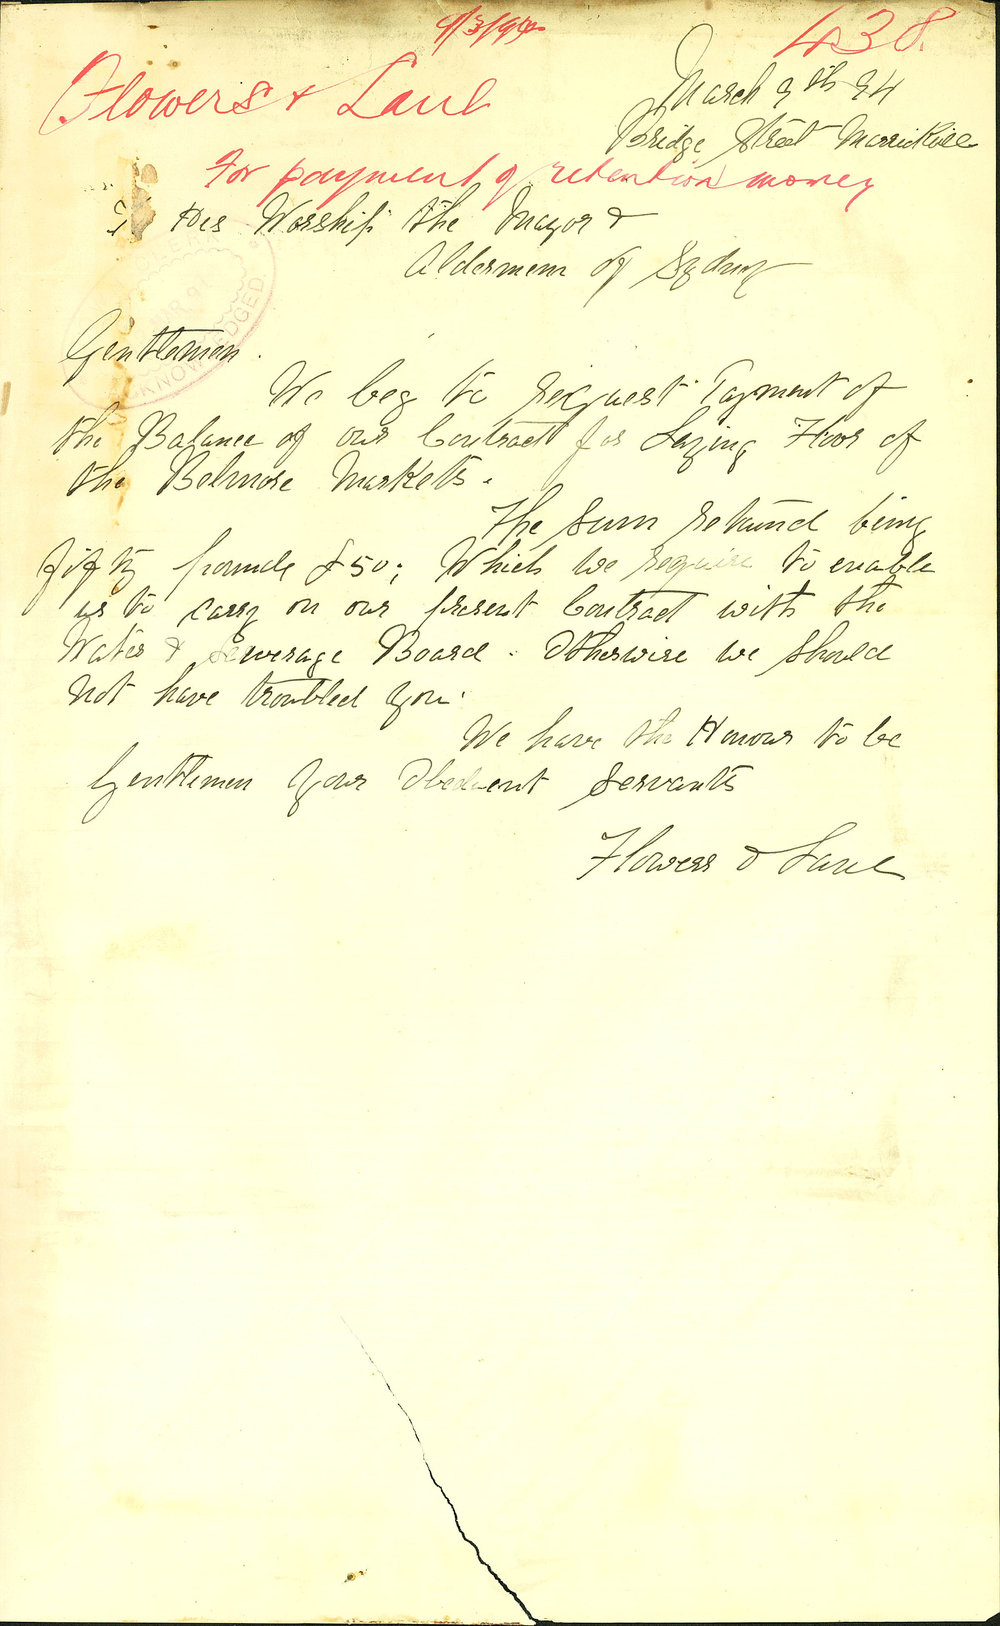 9/3/94
438.
Flowers & Laul
March 9th 94
Bridge Street Marrickville
For payment of retention money
To His Worship the Mayor &
Aldermem of Sydney
KNOWLEDGED
Gentlemen.
We beg to request Payment of
the Balance of our Contract for Laying Floor of
the Belmore Markets.
The Sum retained being
fifty pounds £50; Which we require to enable
us to carry on our present Contract with the
Water & Sewerage Board. Otherwise we should
not have troubled you.
We have the Honour to be
Gentlemen Your Obedient Servants
Flowers & Laul